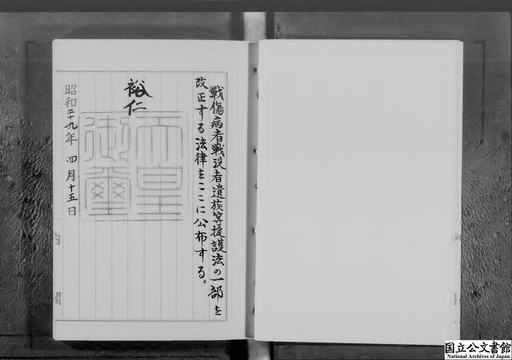 戦傷病者戦没者遺族等援護法の一部を
改正する法律をここに公布する。
裕仁
天皇
御璽
昭和二十九年四月十五日
国立公文書館
National Archives of Japan